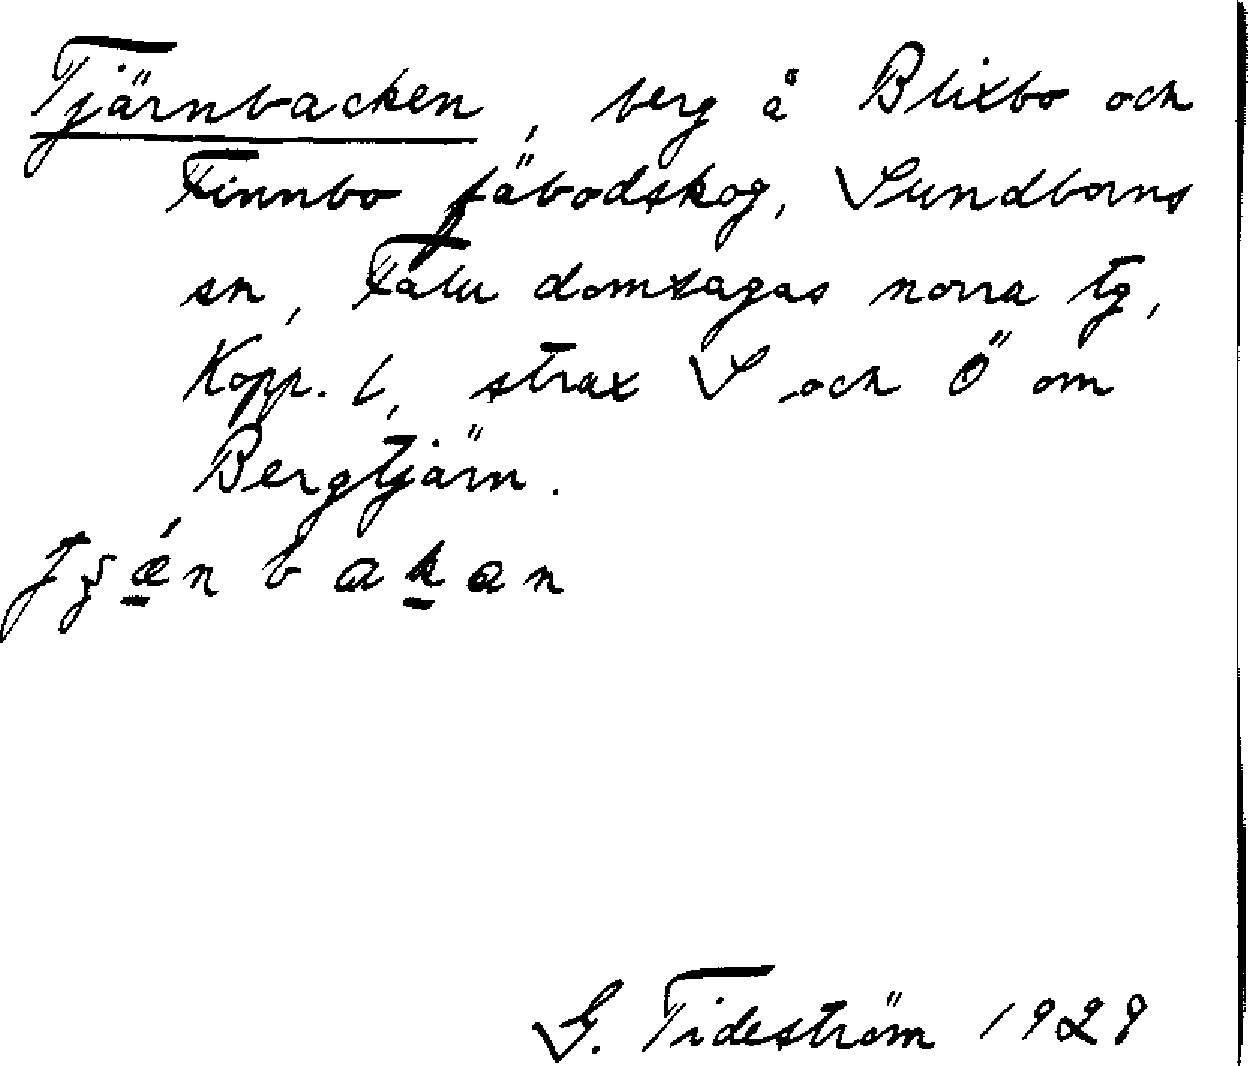 Tjärnbacken, berg å Blixbo och
Finnbo fäbodskog, Sundborns
sn, Falu domsagas norra tg,
Kopp. l, strax S och Ö om
Bergtjärn.
G. Tideström 1929